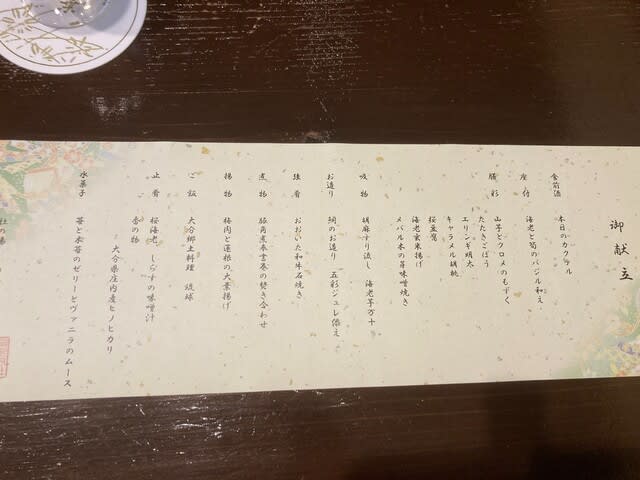 御献立
食前酒 本日のカクテル
座付 海老と筍のバジル和え
膳彩 山芋とクロメのもずく
たたきごぼう
エリンギ明太
キャラメル胡桃
桜豆腐
海老玄米揚げ
メバル木の芽味噌焼き
吸物 胡麻すり流し 海老芋万十
お造り 鯛のお造り 五彩ジュレ添え
強肴 おおいた和牛石焼き
煮物 豚角煮春雪巻の焚き合わせ
揚物 梅肉と蓮根の大葉揚げ
ご飯 大分郷土料理 琉球
止肴 桜海老、しらすの味噌汁
香の物
大分県庄内産ヒノヒカリ
水菓子 苺と木苺のゼリーとヴァニラのムース